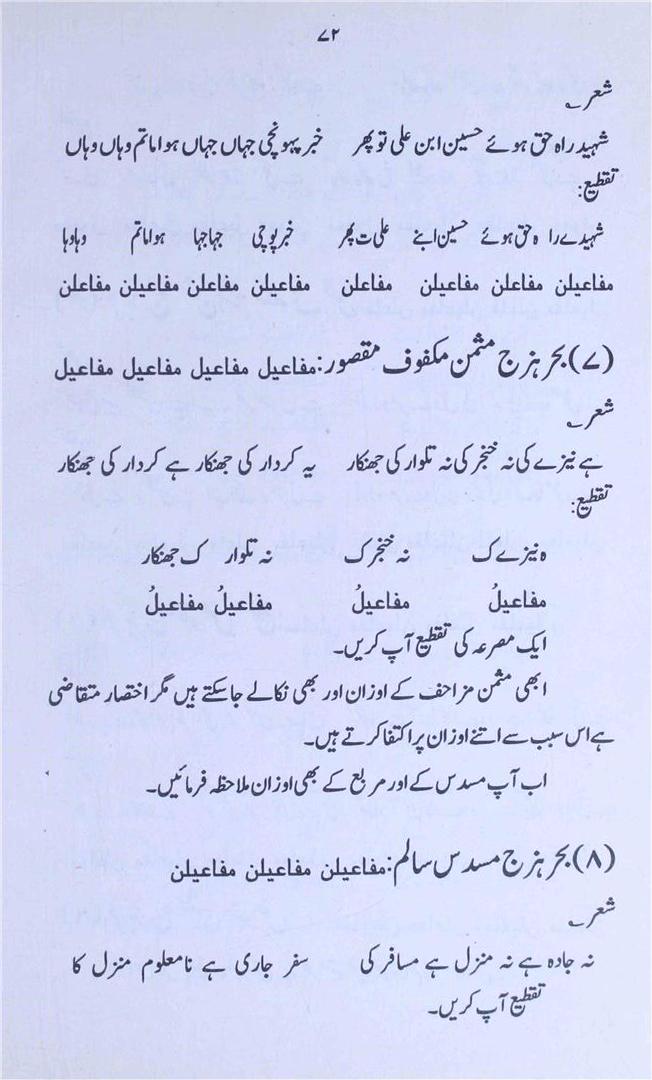 ۷۲
شعر
شہید راہ حق ہوئے حسین ابن علی تو پھر خبر پہونچی جہاں جہاں ہوا ماتم وہاں وہاں
تقطیع:
شہیدے را ہ حق ہوئے حسین ابنے علی ت پھر خبر پوچی جہا جہا ہوا ماتم وہا وہا
مفاعیلن مفاعلن مفاعیلن مفاعلن مفاعیلن مفاعلن مفاعیلن مفاعلن
(۷) بحر ہزج مثمن مکفوف مقصور: مفاعیل مفاعیل مفاعیل مفاعیل
شعر
ہے نیزے کی نہ خنجر کی نہ تلوار کی جھنکار یہ کردار کی جھنکار ہے کردار کی جھنکار
تقطیع:
ہ نیزے ک نہ خنجر ک نہ تلوار ک جھنکار
مفاعیلُ مفاعیلُ مفاعیلُ مفاعیلُ
ایک مصرعہ کی تقطیع آپ کریں۔
ابھی مثمن مزاحف کے اوزان اور بھی نکالے جاسکتے ہیں مگر اختصار متقاضی
ہے اس سبب سے اتنے اوزان پر اکتفا کرتے ہیں۔
اب آپ مسدس کے اور مربع کے بھی اوزان ملاحظہ فرمائیں۔
(۸) بحر ہزج مسدس سالم: مفاعیلن مفاعیلن مفاعیلن
شعر
نہ جادہ ہے نہ منزل ہے مسافر کی سفر جاری ہے نامعلوم منزل کا
تقطیع آپ کریں۔